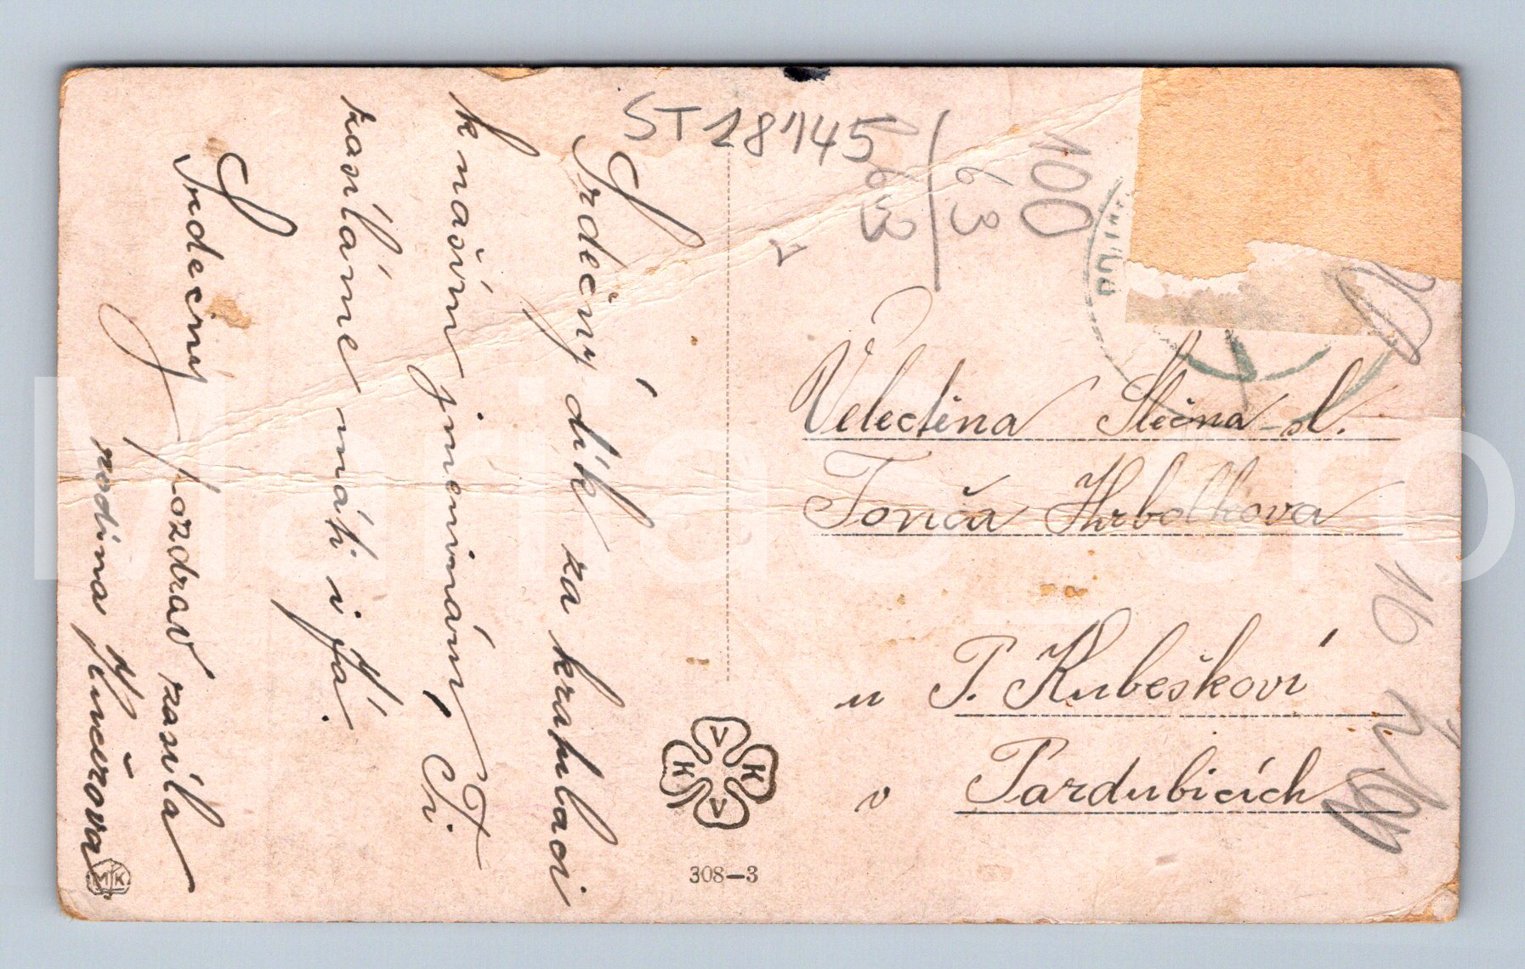 ST 18145
100
63
663
Srdečný dík za kratulaci
k našim jmeninám, Ti
zasíláme máti i já.
Srdečný pozdrav zasílá
rodina Kučerova
Velectěna Slečna sl.
Tonča Hrbolkova
u P. Kubeškovi
v Pardubicích
16
V K V K
308-3
MK